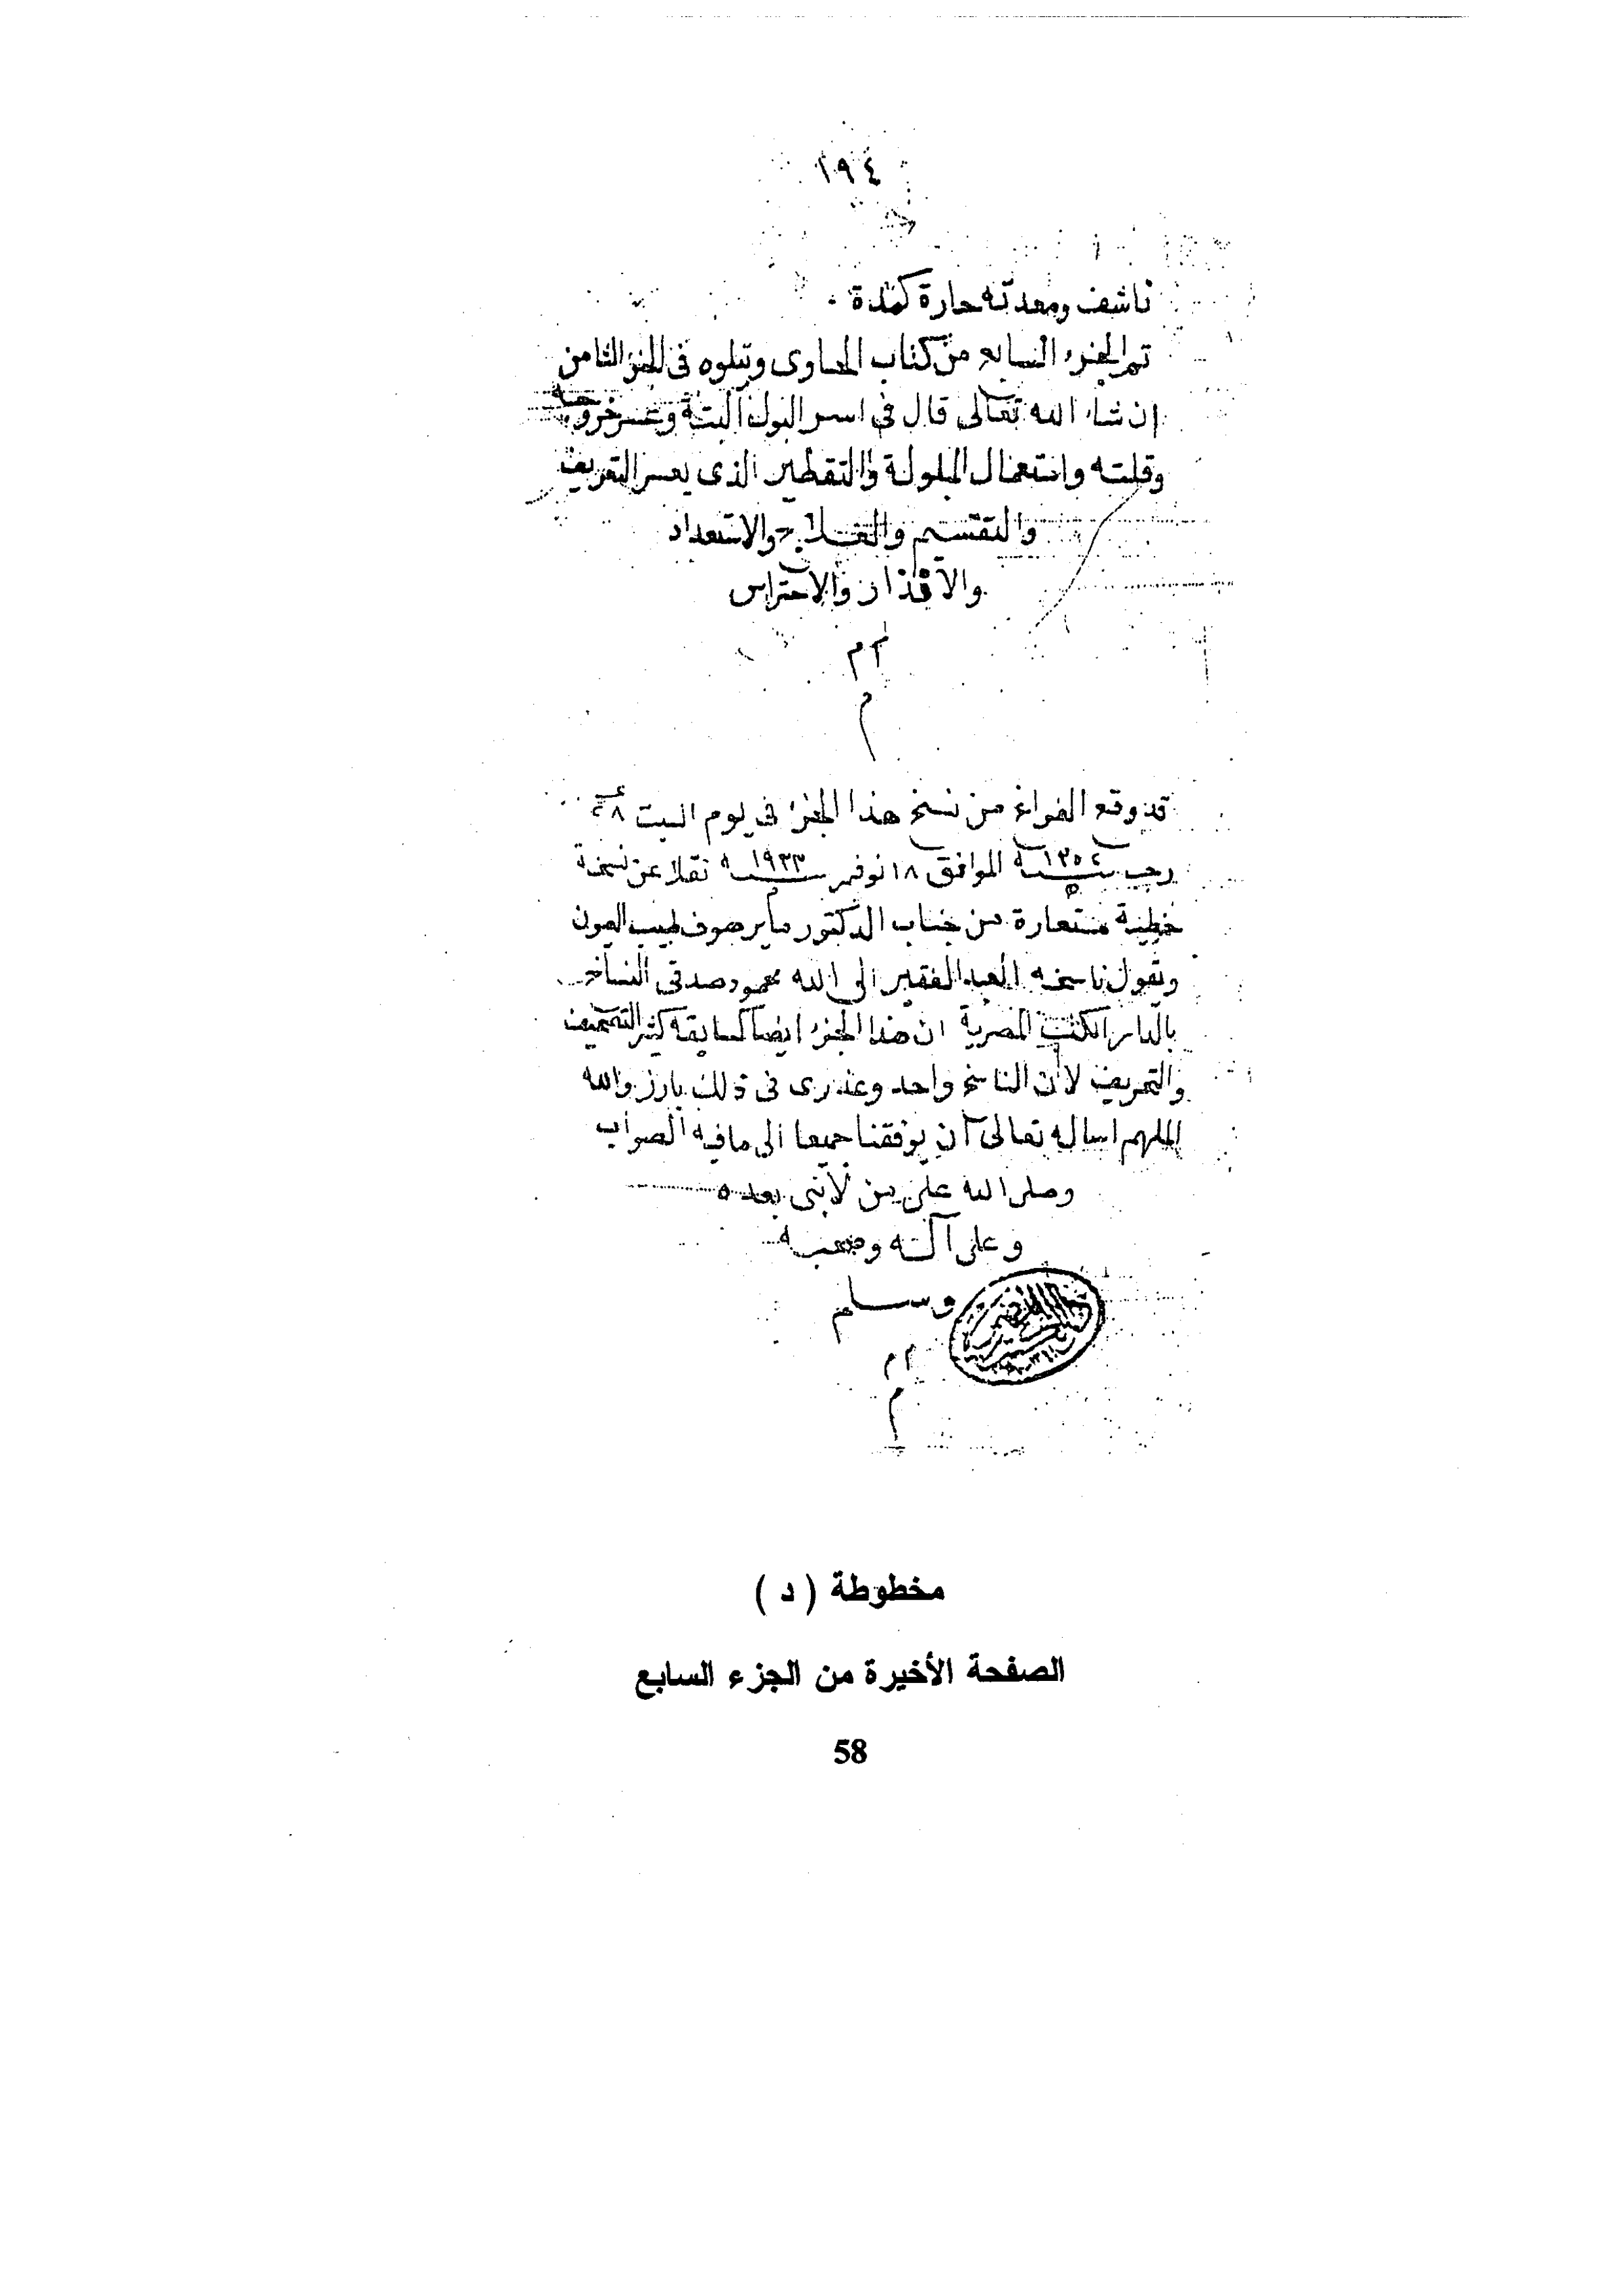 ١٩٤
ناشف ومعدته حارة كمدة .
تم الجزء السابع من كتاب الحاوى ويتلوه فى الجزء الثامن
ان شاء الله تعالى قال فى اسر البول البتة وعسر خروجه
وقلته واستعمال المبلولة والتقطير الذى يعسر التعريف
والتقسيم والعلاج والاستعداد
والاقذار والاحتراس
م م
م
قد وقع الفراغ من نسخ هذا الجزء فى يوم السبت ٢٨
رجب سنة ١٣٥٢ه الموافق ١٨ نوفمبر سنة ١٩٣٣ نقلا عن نسخة
خطية مستعارة من جناب الدكتور مايرهوف طبيب العيون
ويقول ناسخه العبد الفقير الى الله محمود صدقى النساخ
بالدار الكتب المصرية ان هذا الجزء ايضا كسابقه كثير التصحيف
والتحريف لأن الناسخ واحد وعذرى فى ذلك بارز والله
الملهم اساله تعالى أن يوفقنا جميعا الى ما فيه الصواب
وصلى الله على من لا نبى بعده
وعلى آله وصحبه
وسلم
م م
م
مخطوطة ( د )
الصفحة الأخيرة من الجزء السابع
58